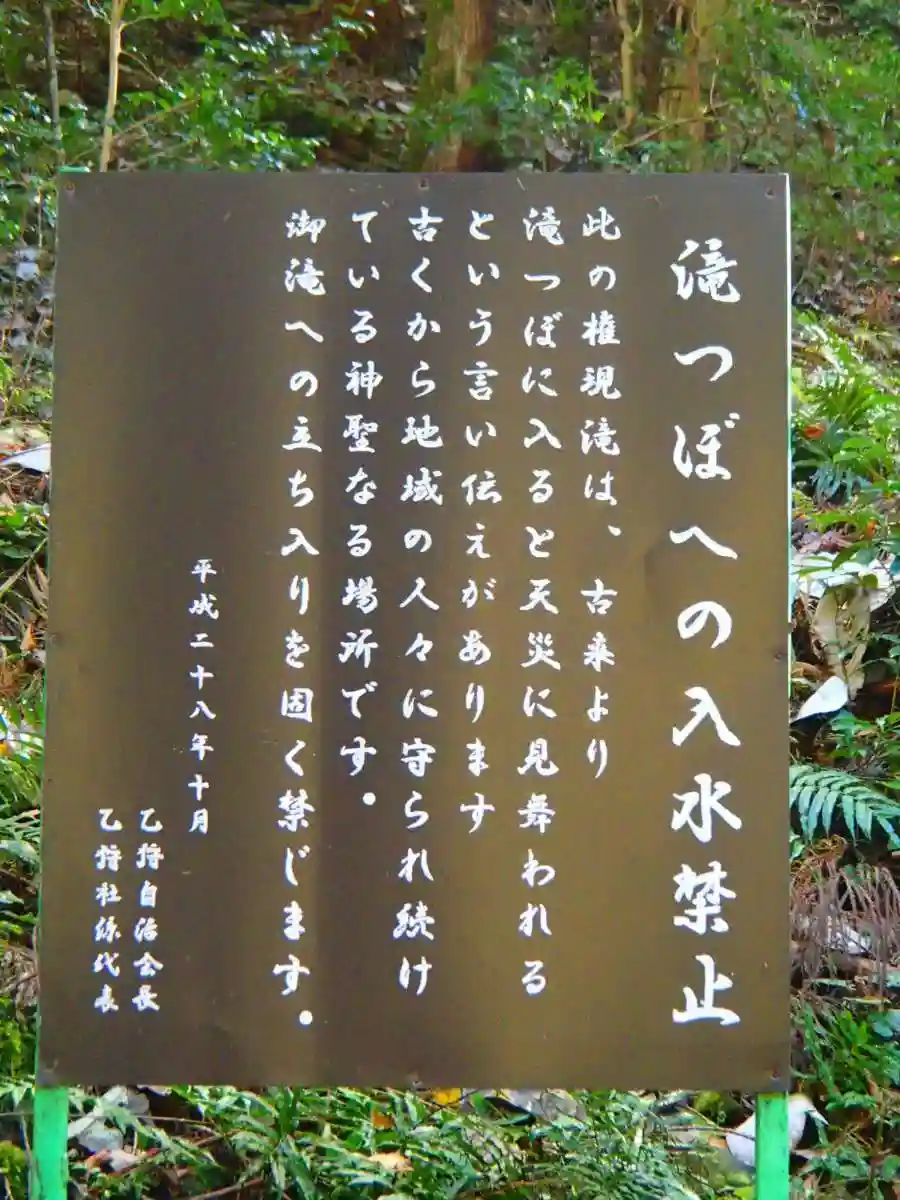 滝つぼへの入水禁止
此の権現滝は、古来より
滝つぼに入ると天災に見舞われる
という言い伝えがあります
古くから地域の人々に守られ続け
ている神聖なる場所です。
御滝への立ち入りを固く禁じます。
平成二十八年十月
乙狩自治会長
乙狩社総代表